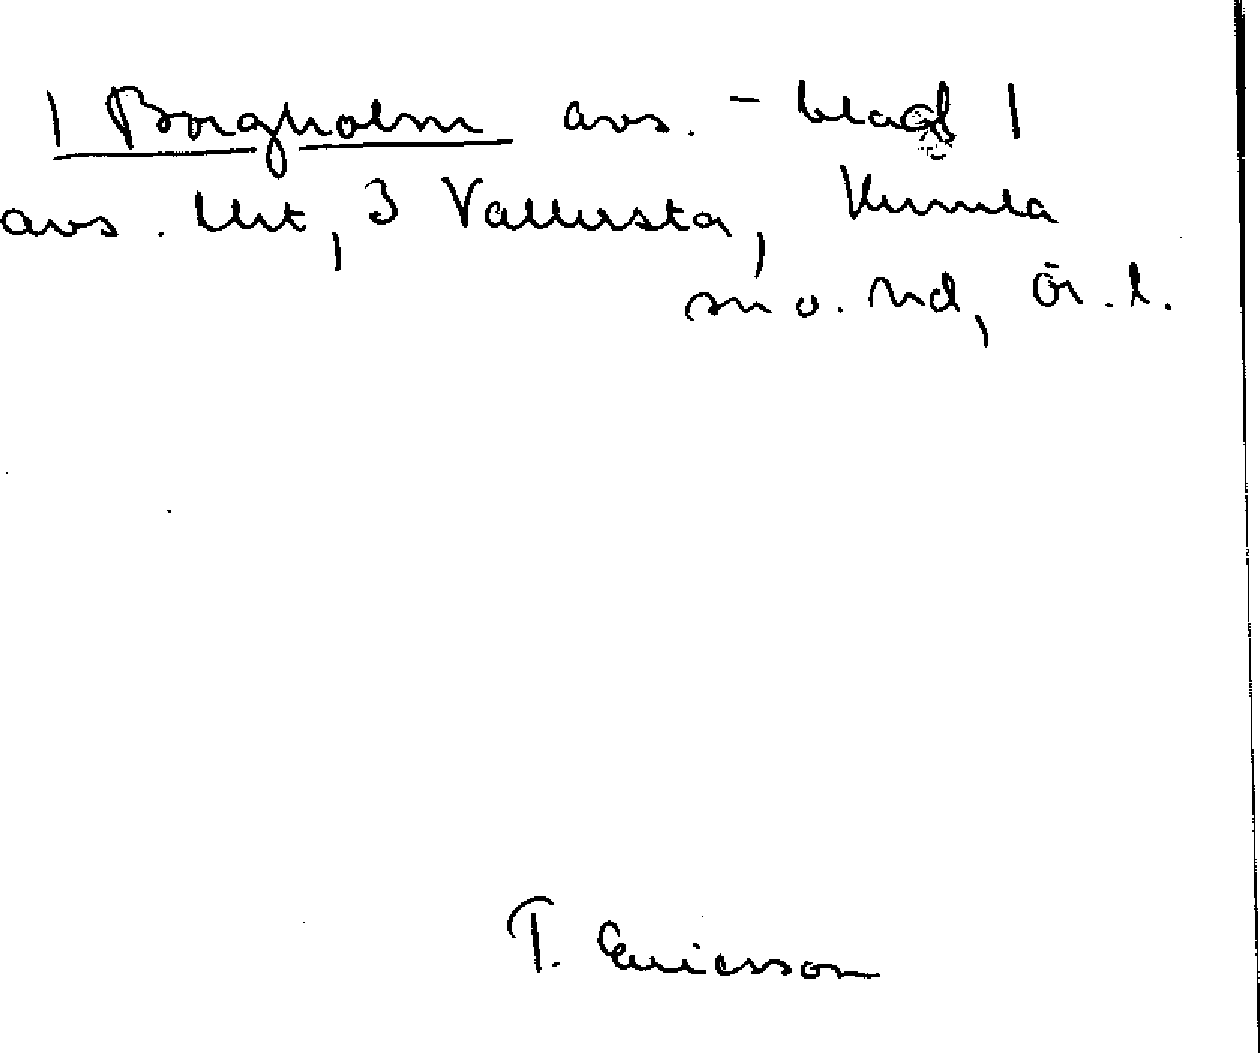 1 Borgholm avs. - blad 1
avs. Urt, 3 Vallersta, Kumla
sn o. hd, Ör. l.
T. Ericsson